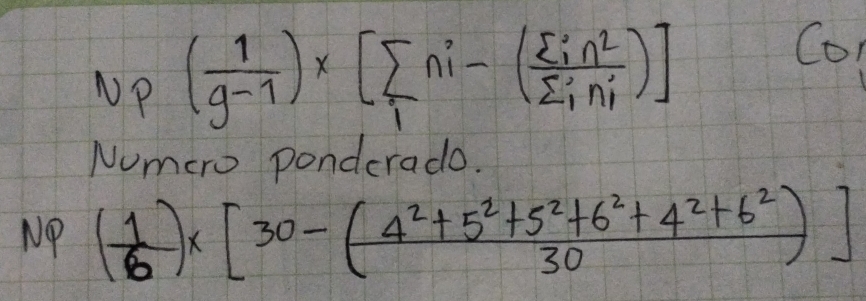 Np (1/g-1) × [Σi ni - (Σi n²/Σi ni)] Cor
Numero ponderado.
NP (1/6) × [30 - (4²+5²+5²+6²+4²+6²/30)]